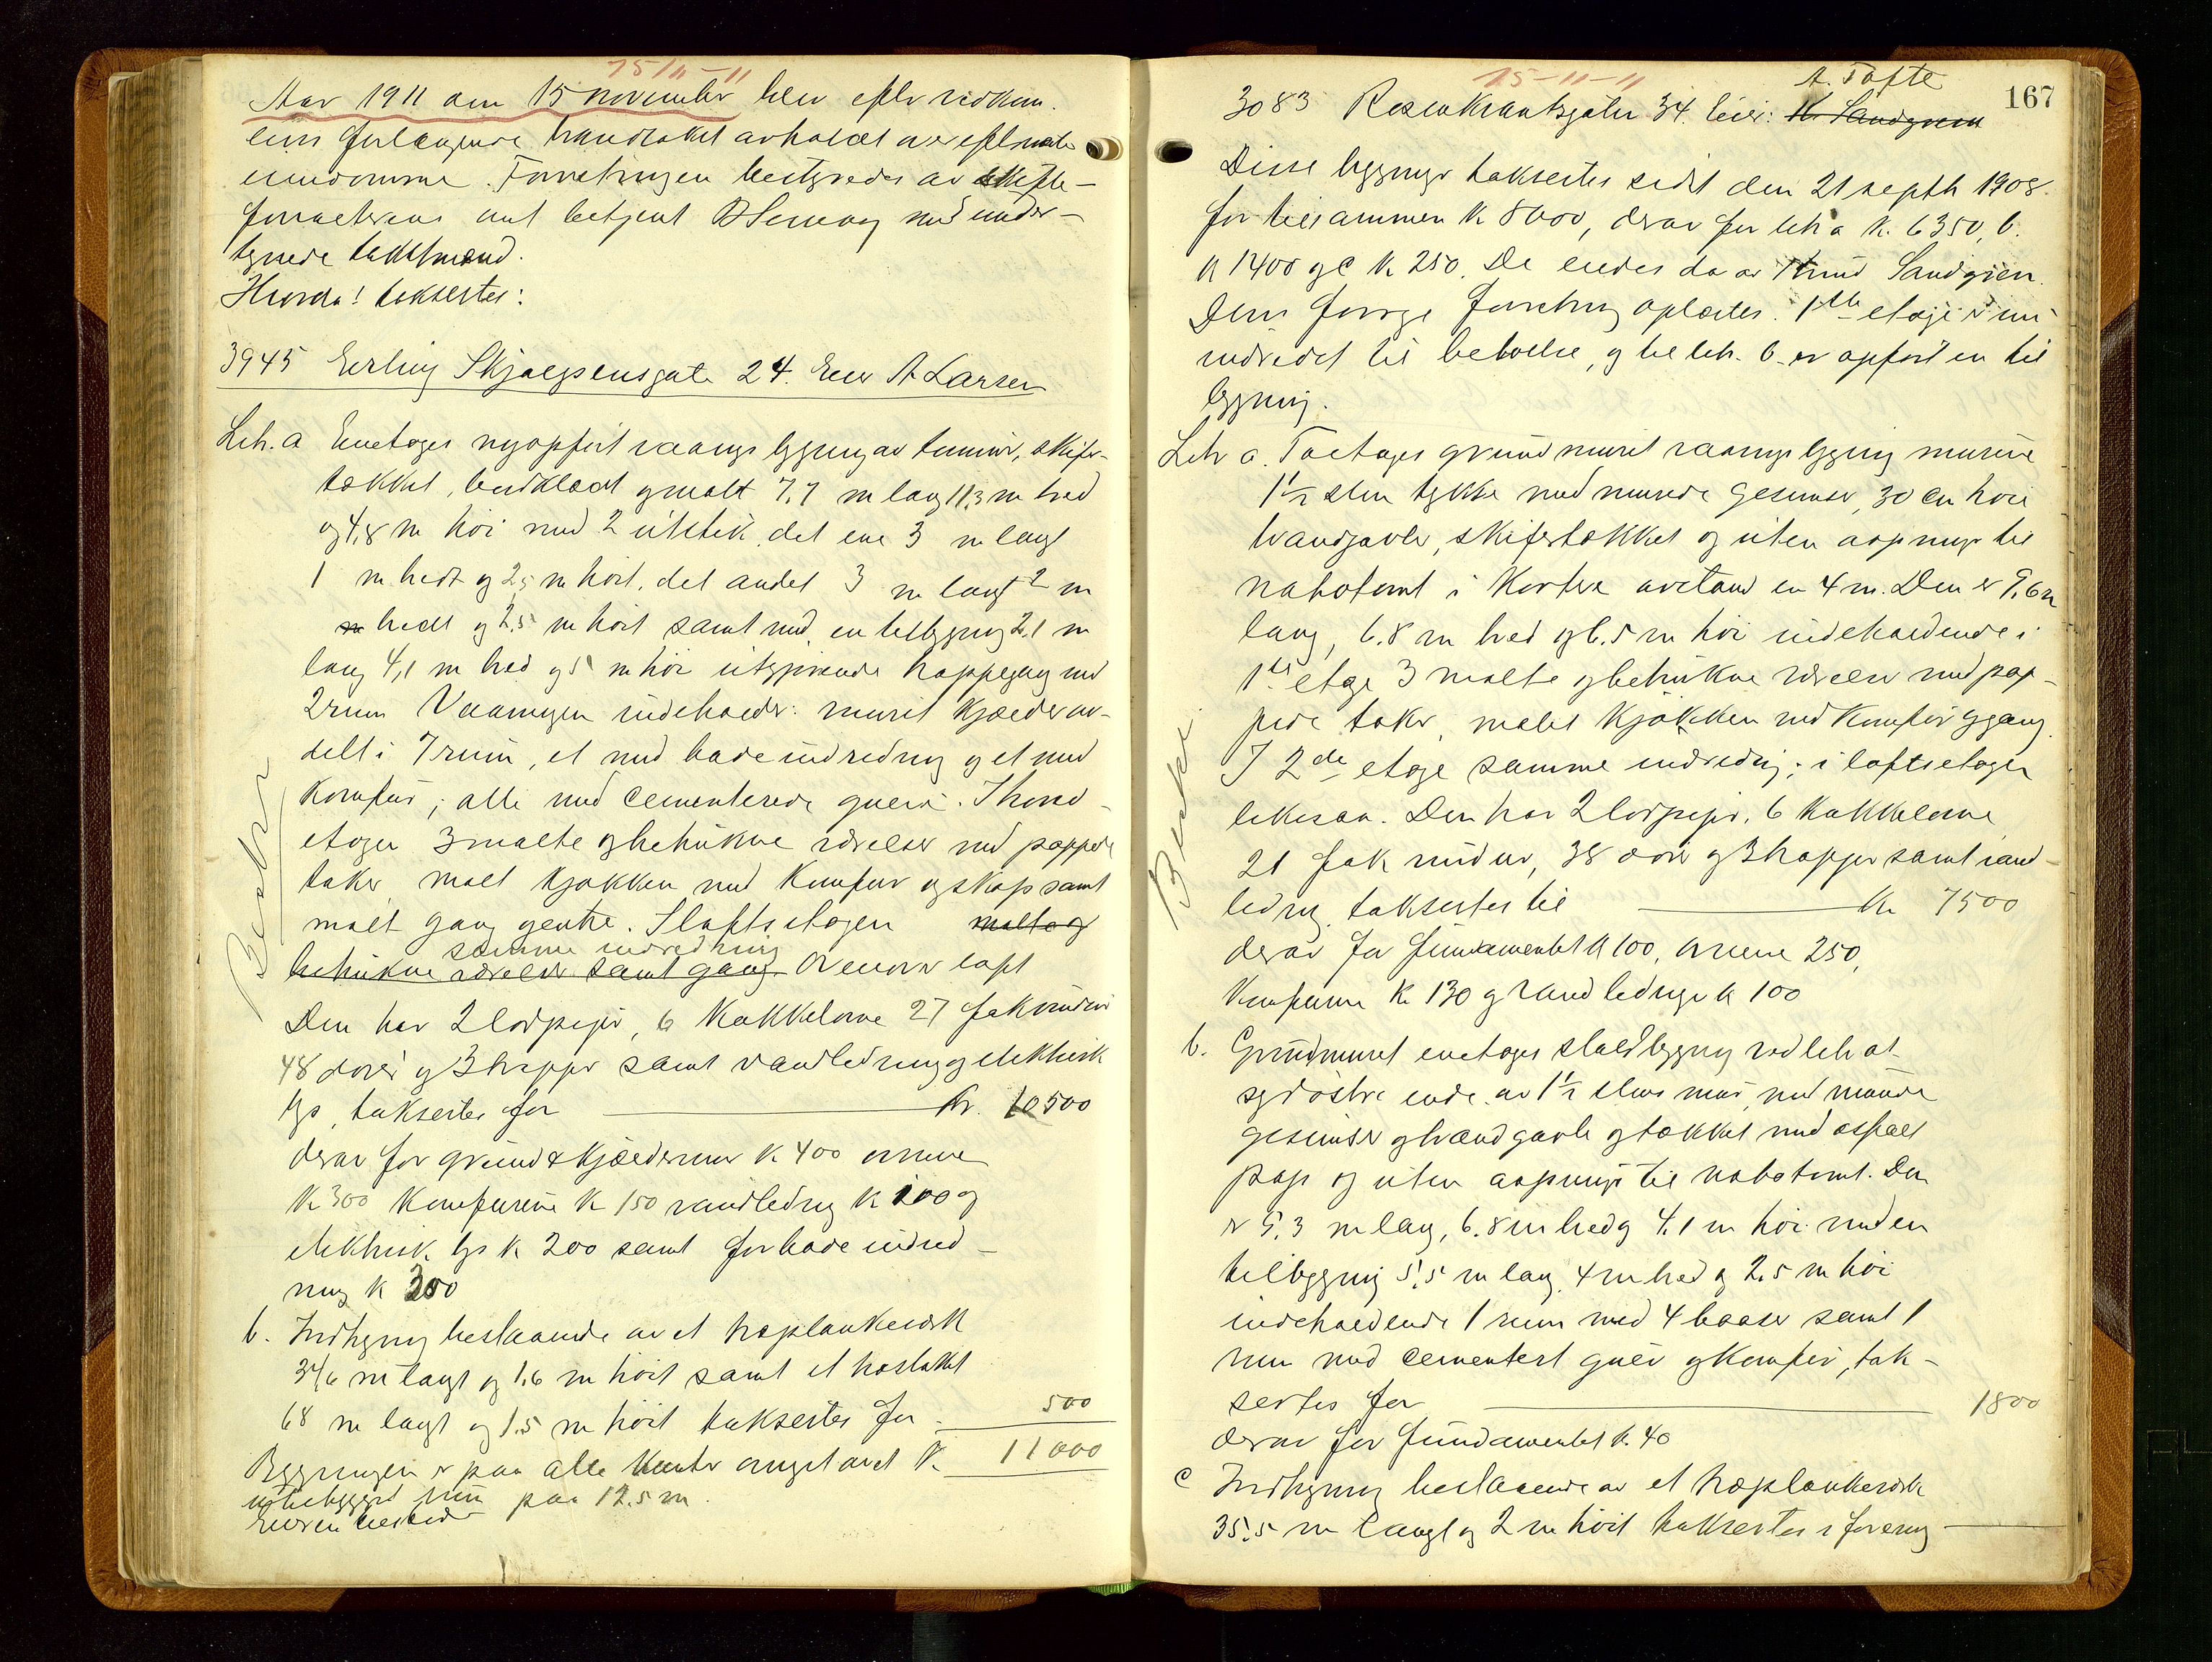 15/11-11
Aar 1911 den 15 november blev efter vedkom.
eiers forlangende brandtakst avholdt over efternævnte
eiendomme. Forretningen bestyredes av skifte-
forvalterens aut betjent med under-
tegnede takstmænd.
Hvorda! taksertes:
3945 Erling Skjalgsensgate 24. Eier A Larsen
Litr. a Enetages nyopført vaaningsbygning av tømmer, skifer-
tækket, bordklædt og malt 7,7 m lang 11,3 m bred
og 4,8 m høi med 2 utstik, det ene 3 m langt
1 m bredt og 2,5 m høit, det andet 3 m langt 2 m
m bredt og 2,5 m høit samt med en tilbygning 2,1 m
lang 4,1 m bred og 5 m høi utgjørende trappegang med
2 rum Vaaningen indeholder: muret kjælder av-
delt i 7 rum, et med badeindredning og et med
komfur; alle med cementerede gulve. I hoved-
etagen 3 malte og betrukne værelser med pappede
taker malt kjøkken med komfur og skap samt
malt gang og entre. I loftsetagen malte og
samme indredning
betrukne værelser samt gang Ovenover loft
Den har 2 lodpiper, 6 kakkelovne 27 fak vinduer
48 dører og 3 trapper samt vandledning og elektrisk
lys, taksertes for Kr. 10500
derav for grund & kjældermur K 400 ovnene
K 300 Komfurene K 150 vandledning K 100 og
elektrisk lys K 200 samt for bade indred-
ning K 300
b. Indhegning bestaaende av et træplankeværk
34,6 m langt og 1.6 m høit samt et
68 m langt og 1.5 m høit taksertes for 500
Bygningen er paa alle kanter omgit avet K. 11000
ubebygget rum paa 12.5 m.
Eieren tilstede
Beskr.
167
15-11-11
A. Tofte
3083 Rosenkrantzgaten 34. Eier: K. Sandgren
Disse bygninger taksertes sidst den 21 septbr 1908.
for tilsammen K 8000, derav for litr a K. 6350, b.
K 1400 og c K 250. De eiedes da av Knud Sandgren.
Den forrige forretning oplæstes. 1ste etage er nu
indredet til beboelse, og til litr. b. er opført en til
bygning.
Litr a. Toetages grundmuret vaaningsbygning murene
1½ sten tykke med murede gesimser, 30 cm høie
brandgavle, skifertækket og uten aapninger til
nabotomt i kortere avstand en 4 m. Den er 9,6 m
lang, 6.8 m bred og 6.5 m høi indeholdende i
1ste etage 3 malte og betrukne værelser med pap-
pede taker, malet kjøkken med komfur og gang.
I 2den etage samme indredning; i loftsetagen
likesaa. Den har 2 lodpiper, 6 kakkelovne
21 fak vinduer, 38 dører og 3 trapper samt vand-
ledning taksertes til Kr 7500
derav for fundamentet K 100, ovnene 250,
Komfurene K 130 og vandledninger K 100
b. Grundmuret enetages staldbygning ved litr a's
sydøstre ende av 1½ stens mur, med murede
gesimser og brandgavle og tækket med asfalt
pap og uten aapninger til nabotomt. Den
er 9.3 m lang, 6.8 m bred og 4.1 m høi med en
tilbygning 5.5 m lang 4 m bred og 2.5 m høi
indeholdende 1 rum med 4 baaser samt 1
rum med cementert gulv og komfur, tak-
sertes for 1800
derav for fundamentet K. 40
c Indhegning bestaaende av et træplankeværk
35.5 m langt og 2 m høit taksertes i forening
Beskr.